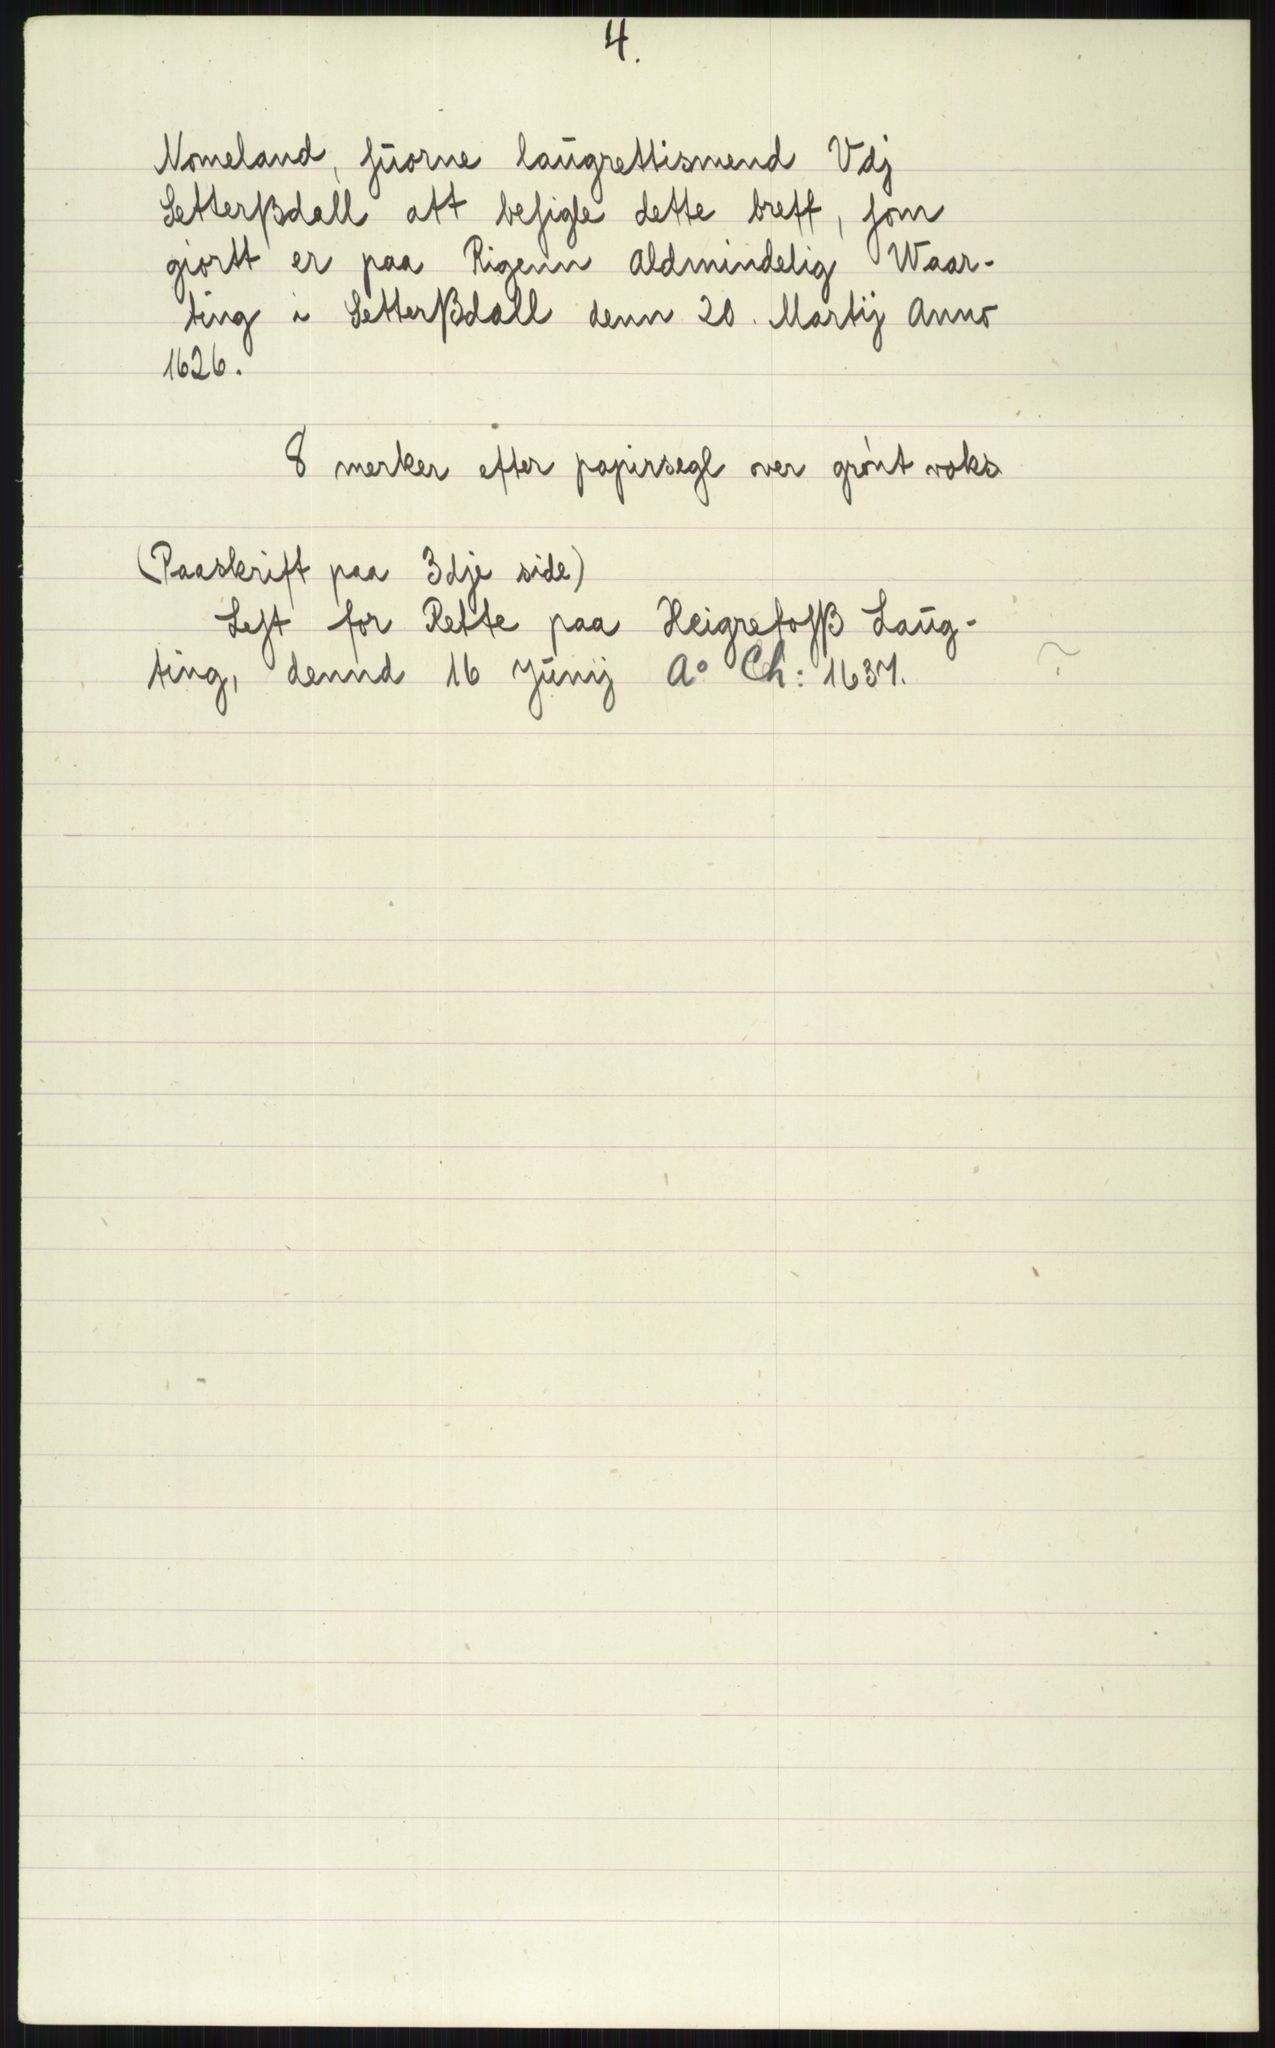 4.
Nomeland, ſuorne laugrettismend Vdj
Setterßdall att beſigle dette breff, ſom
giortt er paa Rigenn Aldmindelig Waar-
ting i Setterßdall denn 20. Martij Anno
1626.
8 merker efter papirsegl over grønt voks
(Paaskrift paa 3dje side)
Leſt for Rette paa Heigrefoſß Laug-
ting, dennd 16 Junij A° Ch: 1637. ?